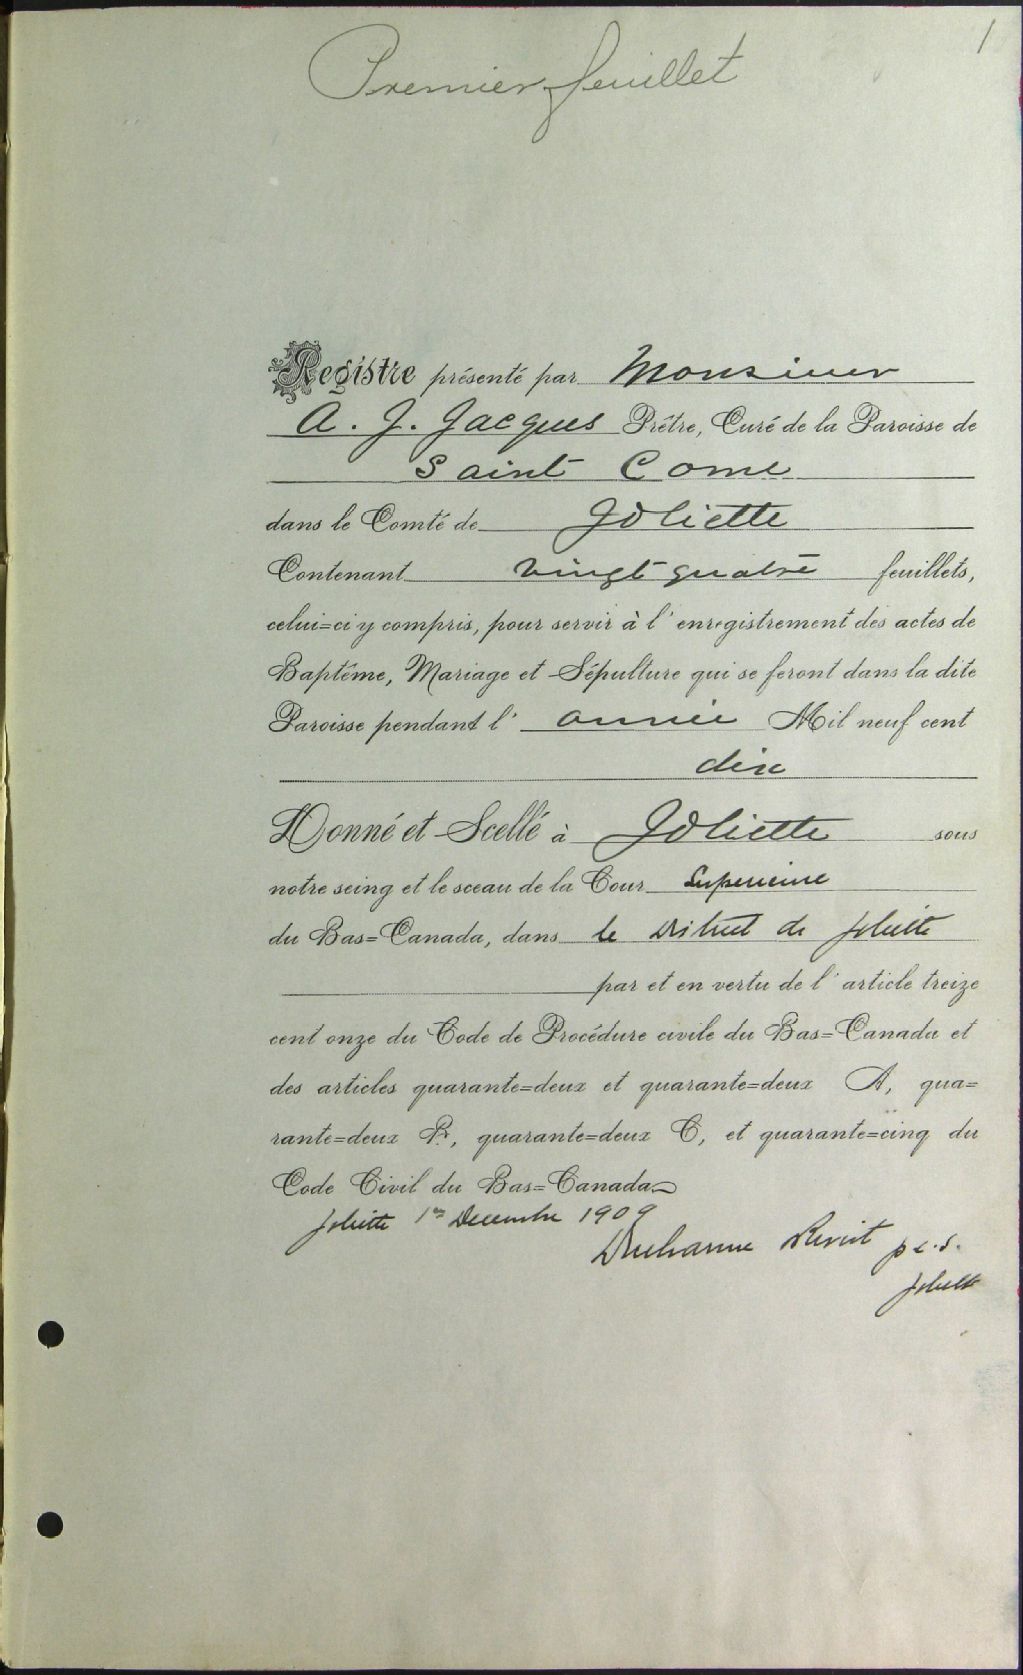 1
Premier feuillet
Registre présenté par Monsieur
A. J. Jacques Prêtre, Curé de la Paroisse de
Saint Come
dans le Comté de Joliette
Contenant vingt quatre feuillets,
celui=ci y compris, pour servir à l'enregistrement des actes de
Baptême, Mariage et Sépulture qui se feront dans la dite
Paroisse pendant l'année Mil neuf cent
dix
Donné et Scellé à Joliette sous
notre seing et le sceau de la Cour Superieure
du Bas=Canada, dans le District de Joliette
par et en vertu de l'article treize
cent onze du Code de Procédure civile du Bas=Canada et
des articles quarante=deux et quarante=deux A, qua=
rante=deux B, quarante=deux C, et quarante=cinq du
Code Civil du Bas=Canada
Joliette 1er Decembre 1909
p c. s.
Joliette